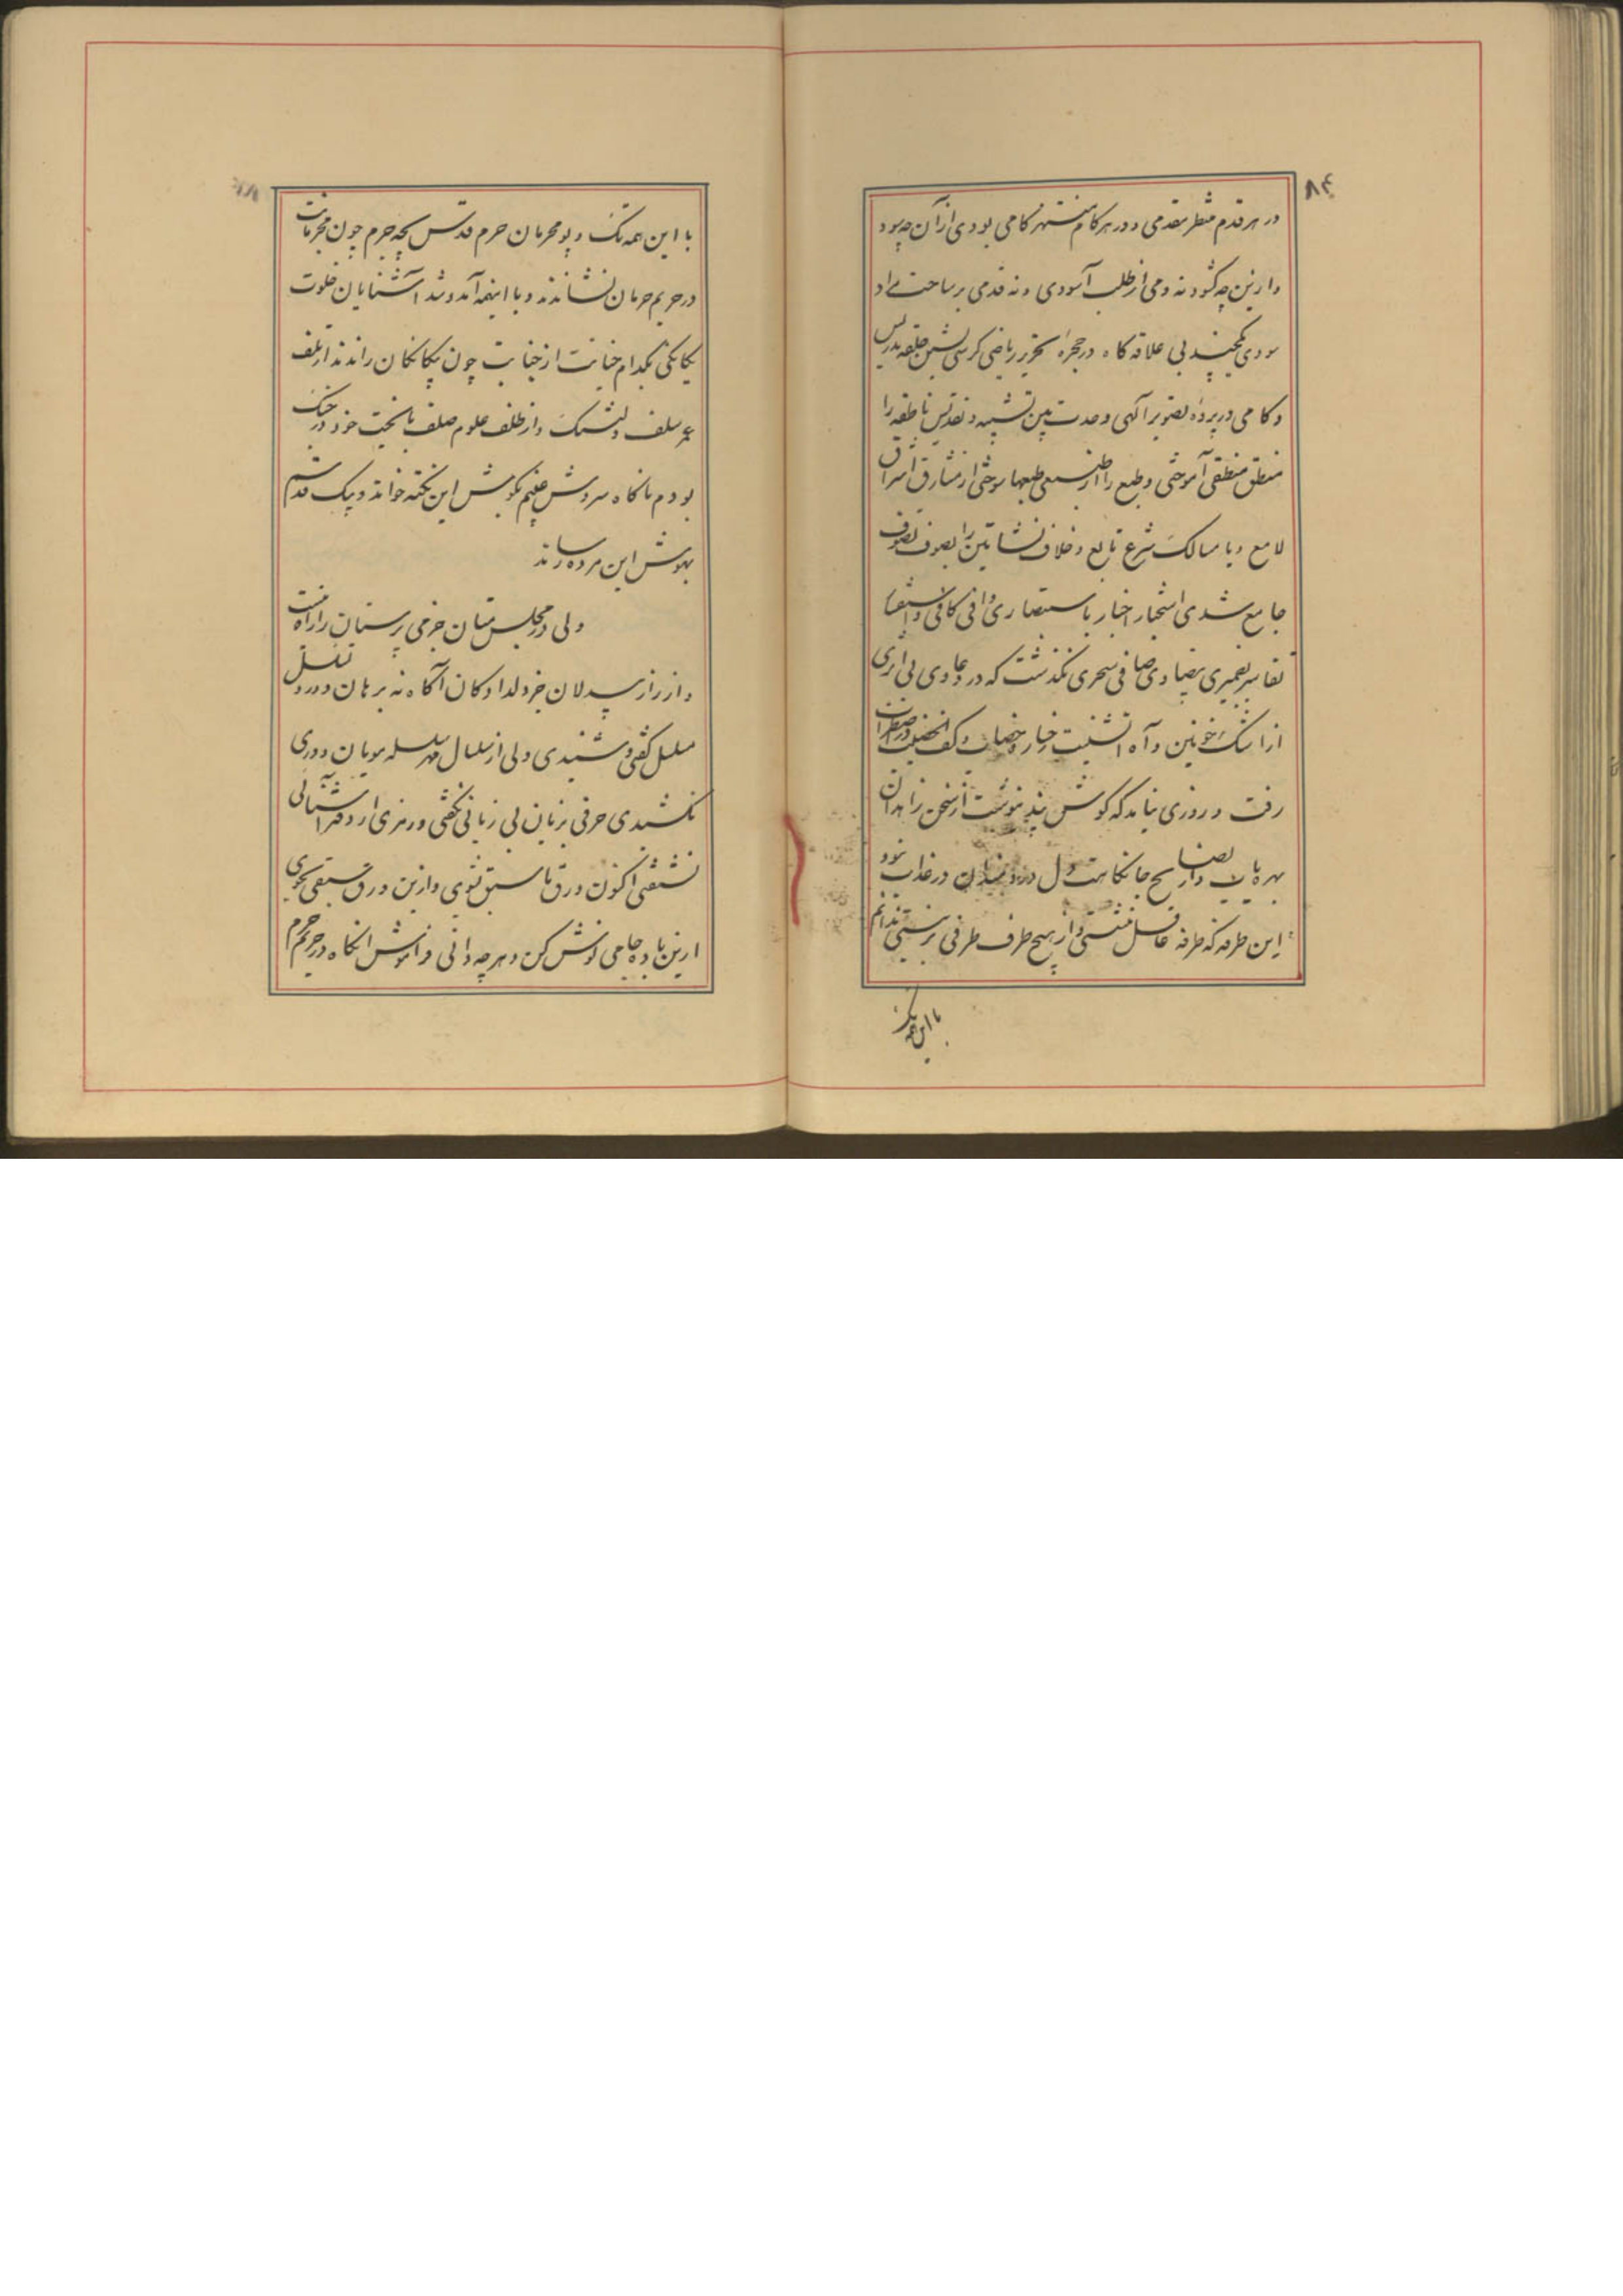 ۸۴
در هر قدم منتظر مقدمی و در هر کام منتهز کامی بودی از آن چه بود
و ازین چه کشود نه دمی از طلب آسودی و نه قدمی بر ساحت مراد
سودی یکچند بی علاقه کاه در حجره تحریر ریاضی کرسی نشین حلقه تدریس
و کاهی در پرده تصویر الهی وحدت بین تشبیه و تقدیس ناطقه را
منطق منطقی آموختی و طبع را از طبیعی طبعها سوختی از مشارق اشراق
لامع و با مسالک شرع تابع و خلاف نشاتین را بصوف تصوف
جامع شدی استخبار اخبار با استبصاری وافی کافی و استیفای
تفاسیر بضمیری بیضاوی صافی سحری نکذشت که در دعاوی بی اثری
از اشک خونین و آه آتشینت رخسار و خضاب و کف الخضیب در اضطراب
رفت و روزی نیامد که کوش پند نیوشت از سخن زاهدان
بهره یاب و از نصایح جانکاهت دل دردمندان در عذاب نبود
این طرفه که طرفه غافل ننشستی و از هیچ طرف طرفی بر نبستی ندانم
با این همه تک
با این همه تک و پو محرمان حرم قدس بچه جرم چون مجرمانت
در حریم حرمان نشاندند و با اینهمه آمد و شد آشنایان خلوت
یکانکی بکدام خیانت از جنابت چون بیکانکان راندند از تلف
عمر سلف دلتنک و از ظلف علوم صلف با بخت خود در جنک
بودم ناکاه سروش غیبم بکوش این نکته خواند و پیک قدسم
بهوش این مژده رساند
ولی در مجلس مستان خرمی پرستان را راه نیست
و از راز بیدلان جز دلدادکان آکاه نه برهان دور و تسلسل
مسلسل کفتی و شنیدی ولی از سلسال مهر سلسله مویان دوری
نکشیدی حرفی بزبان بی زبانی نکفتی و رمزی از دفتر آشنائی
نشنفتی اکنون ورق ما سبق بشوی و ازین ورق سبقی بجوی
ازین باده جامی نوش کن و هر چه دانی فراموش آنکاه در حریم حرم